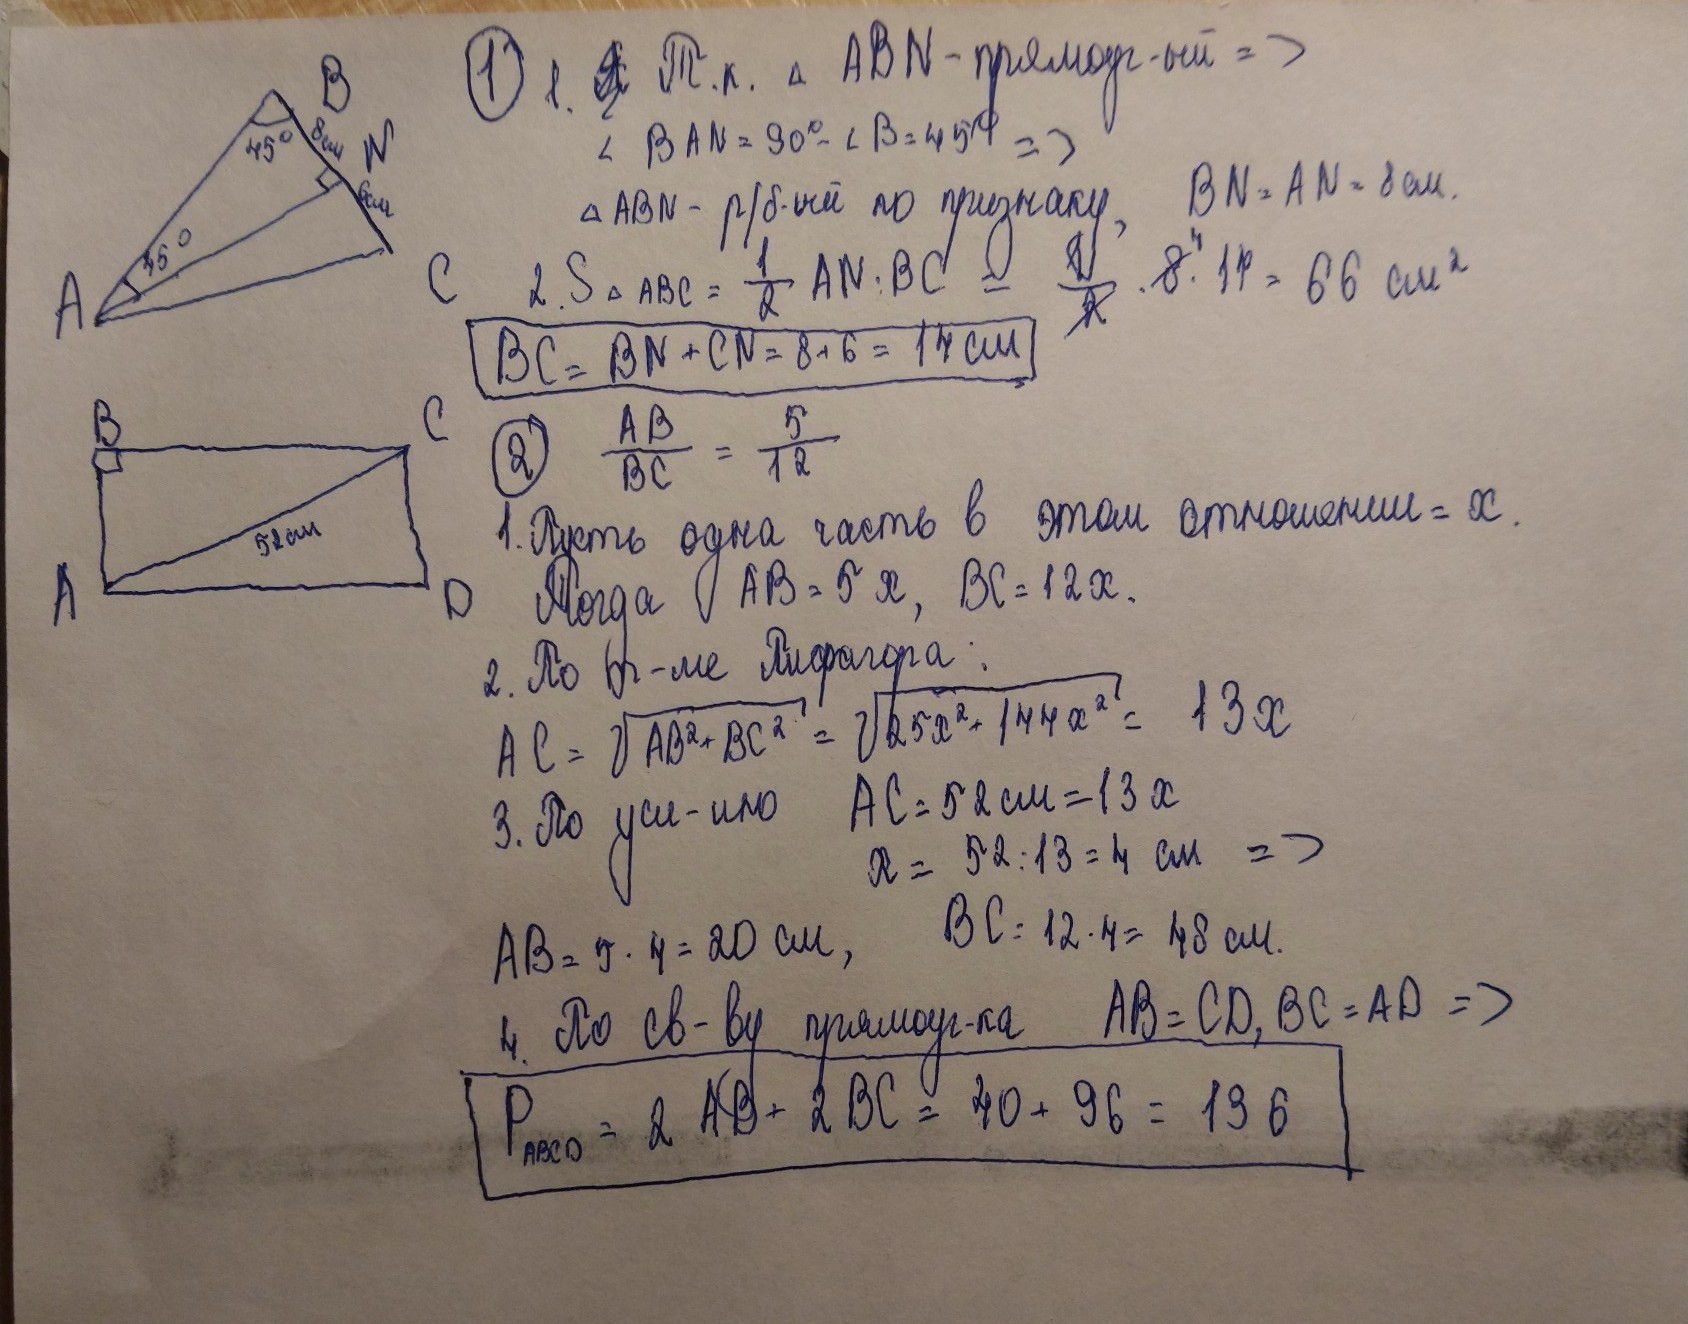 B
45°
8см
N
6см
45°
A
C
① 1. Т.к. △ ABN - прямоуг-ый =>
∠ BAN = 90° - ∠B = 45° =>
△ ABN - р/б-ый по признаку, BN = AN = 8 см.
2. S △ ABC = 1/2 AN · BC = 1/2 · 8 4 · 14 = 66 см²
BC = BN + CN = 8 + 6 = 14 см
B
C
52 см
A
D
② AB/BC = 5/12
1. Пусть одна часть в этом отношении = x.
Тогда AB = 5x, BC = 12x.
2. По т-ме Пифагора:
AC = √AB² + BC² = √25x² + 144x² = 13x
3. По усл-ию AC = 52 см = 13x
x = 52 : 13 = 4 см =>
AB = 5 · 4 = 20 см, BC = 12 · 4 = 48 см.
4. По св-ву прямоуг-ка AB = CD, BC = AD =>
P ABCD = 2 AB + 2 BC = 40 + 96 = 136